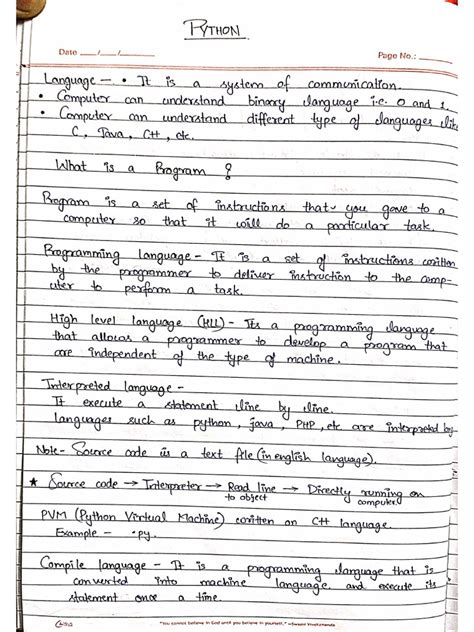 PYTHON
Date ___/___/___
Page No.: ______
Language - • It is a system of communication.
• Computer can understand binary language i.e. 0 and 1.
• Computer can understand different type of languages like
C, Java, C++, etc.
What is a Program ?
Program is a set of instructions that you gave to a
computer so that it will do a particular task.
Programming language - It is a set of instructions written
by the programmer to deliver instruction to the comp-
uter to perform a task.
High level language (HLL) - Its a programming language
that allows a programmer to develop a program that
are independent of the type of machine.
Interpreted language -
It execute a statement line by line.
languages such as python, java, PHP, etc are interpreted by
Note - Source code is a text file (in english language).
★ Source code → Interpreter → Read line → Directly running on
to object computer
PVM (Python Virtual Machine) written on C++ language.
Example - .py.
Compile language - It is a programming language that is
converted into machine language and execute its
statement once a time.
"You cannot believe in God until you believe in yourself." -Swami Vivekananda